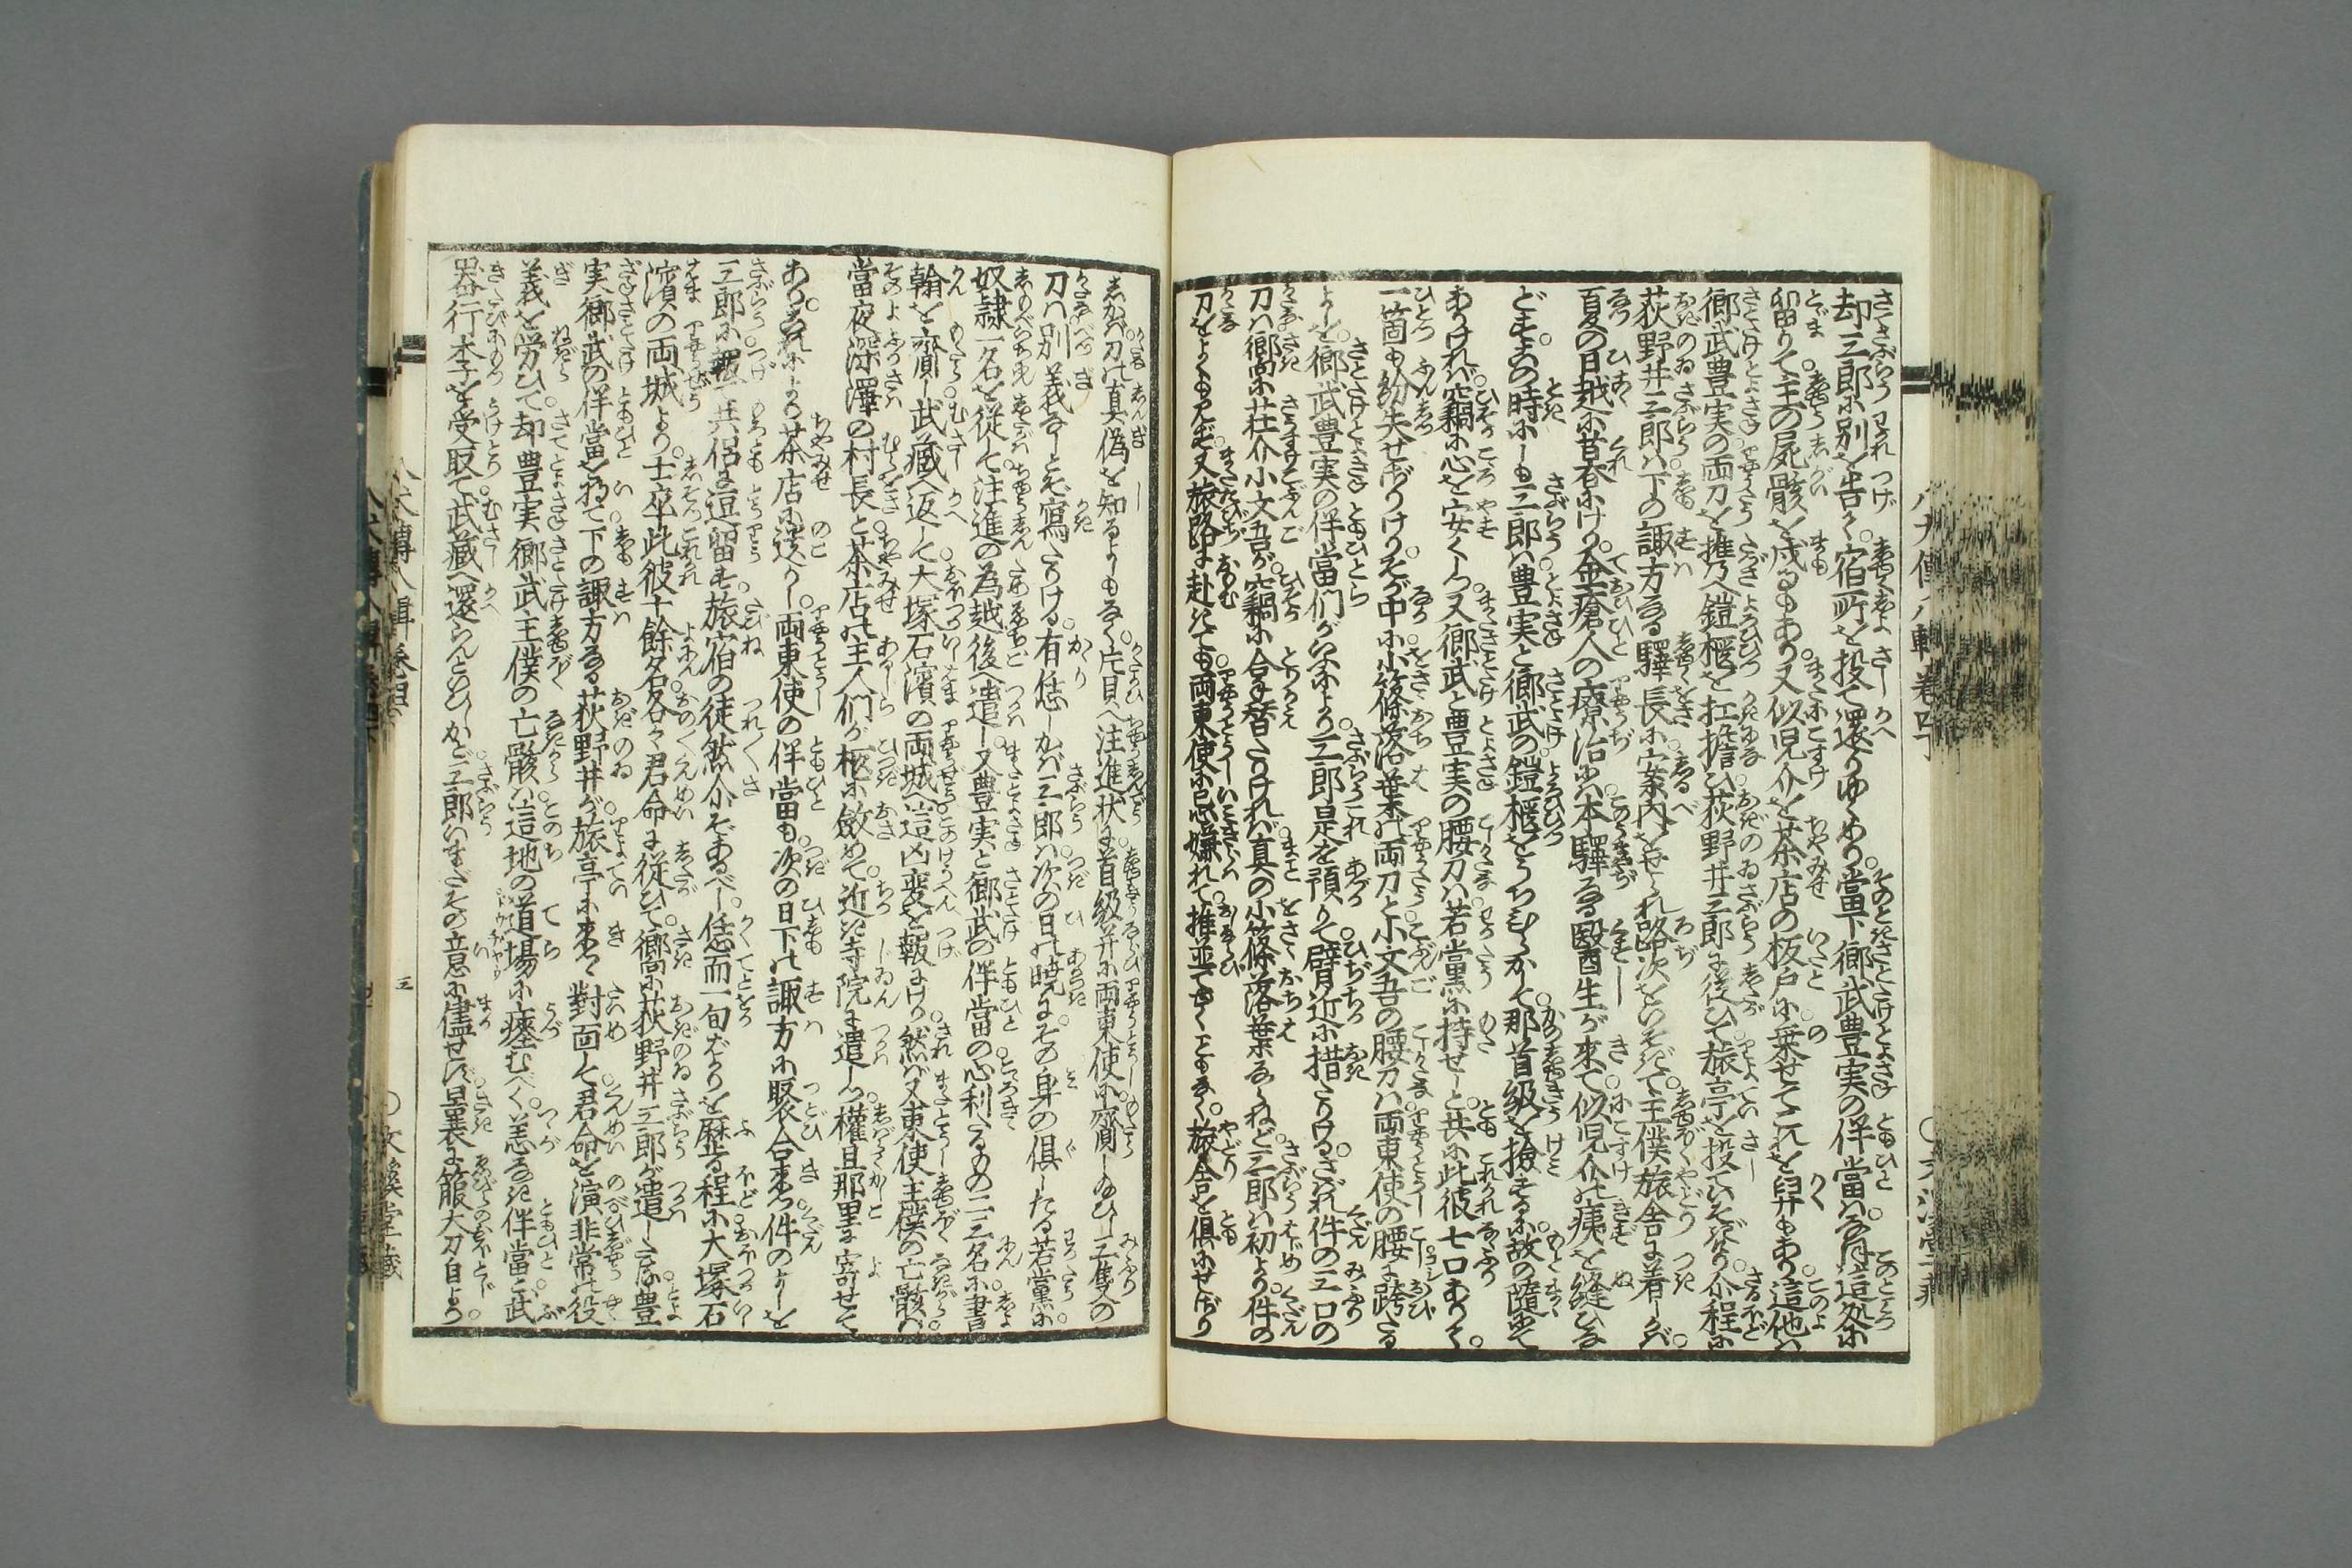 却三郎に別を告て宿所を投て還りゆくめり當下郷武豊実の伴當は
留りて主の屍骸を戍るもあり又似児介を茶店の板戸に乗せてこれを舁もあり這他は
郷武豊実の両刀を携へ鎧櫃を扛擔ひ荻野井三郎に従ひて旅亭を投ていそぎけり介程に
荻野井三郎は下の諏方なる驛長に案内をせられ路次をいそぎて主僕旅舎に着しかば
夏の日越に昔春にけり金瘡人の療治は本驛なる醫生が來て似児介の痍を縫ひな
どすこの時にしも三郎は豊実と郷武の鎧櫃をうちひらかして那首級を撿するに故の隨にて
ありければ竊に心を安くしつ又郷武と豊実の腰刀は若黨に持せしと共に此彼七口ありて
一箇も紛失せざりけりそが中に小篠落葉の両刀と小文吾の腰刀は両東使の腰に跨たる
よしを郷武豊実の伴當們がいふにより三郎是を預りて臂近に措たりけるされば件の三口の
刀は郷に荘介小文吾が竊に合し替たりければ真の小篠落葉ならねど三郎は初より件の
刀をよくも見ず又旅路に赴きても両東使に忌嫌れて推並てゆくこともなく旅舎を倶にせざり
しかば刀の真偽を知るよしもなく片貝へ注進状に首級并に両東使に齎しぬひし三隻の
刀は別義なしとぞ寫たりける有恁しかば三郎は次の日の暁によその身の倶したる若黨に
奴隷一名を従して注進の為越後へ遣し又豊実と郷武の伴當の心利たるもの二三名に書
翰を齎し武藏へ返して大塚石濱の両城へ這凶変を報にけり然ば又東使主僕の亡骸は
當夜深澤の村長と茶店の主人們が柩に斂めて近き寺院に遣しつ權且那里に寄せて
ありこれにより茶店に送りし両東使の伴當も次の日下の諏方に聚合來つ件のよしを
三郎に報て共侶に逗留す旅宿の徒然介ぞあるべし恁而一旬ばかりを歴る程に大塚石
濱の両城より士卒此彼十餘名各々君命に従ひて郷に荻野井三郎が遣したる豊
実郷武の伴當を將て下の諏方なる荻野井が旅亭に來て對面して君命を演非常の役
義を労ひて却豊実郷武主僕の亡骸は這地の道場に瘞むべく恙なき伴當と武
器行李を受取て武藏へ還らんとひしかど三郎はまだその意に儘せず曩に籠大刀自より
八犬傳八輯卷四下
八犬傳八輯卷四
三
文溪堂藏